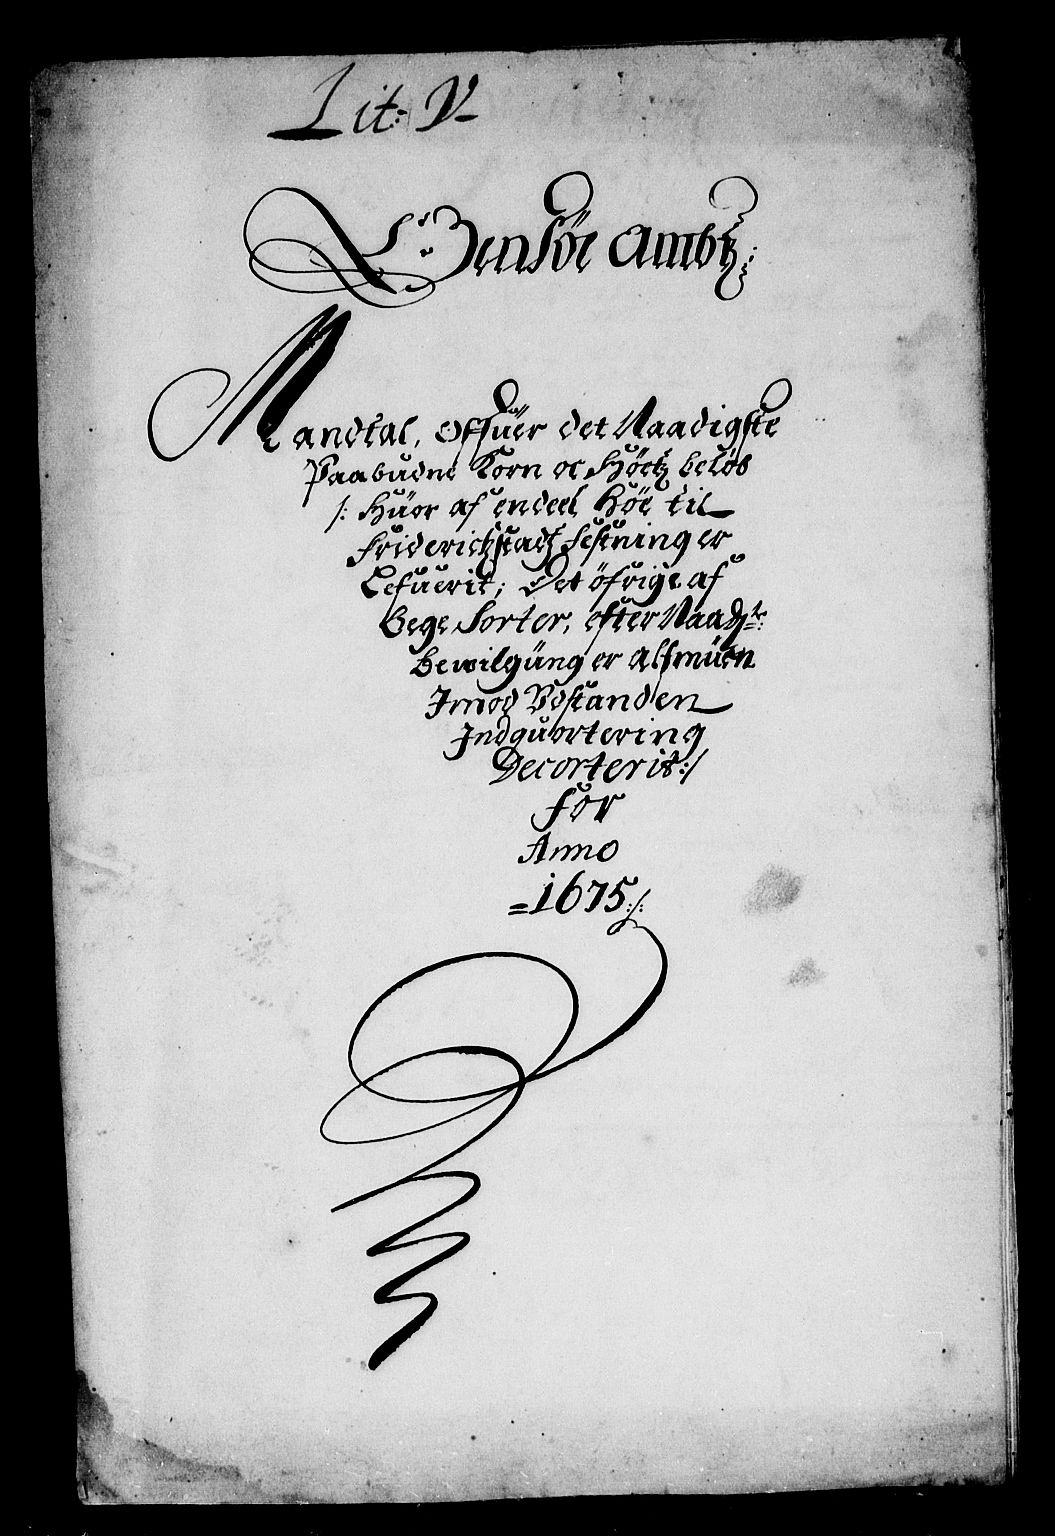 Lit: V
Ambtz:
Mandtal, Offuer det Naadigste
Paabudne Korn oc Höetz beløb
/: Huor af endeel Höe til
Friderichstadtz Festning er
Lefuerit; Det öfrige af
bege Sorter, efter Naadgte:
bewilgüng er Alfmuen
Imod Udstanden
Indquartering
Decorterit:/
for
Anno
=1675:/: